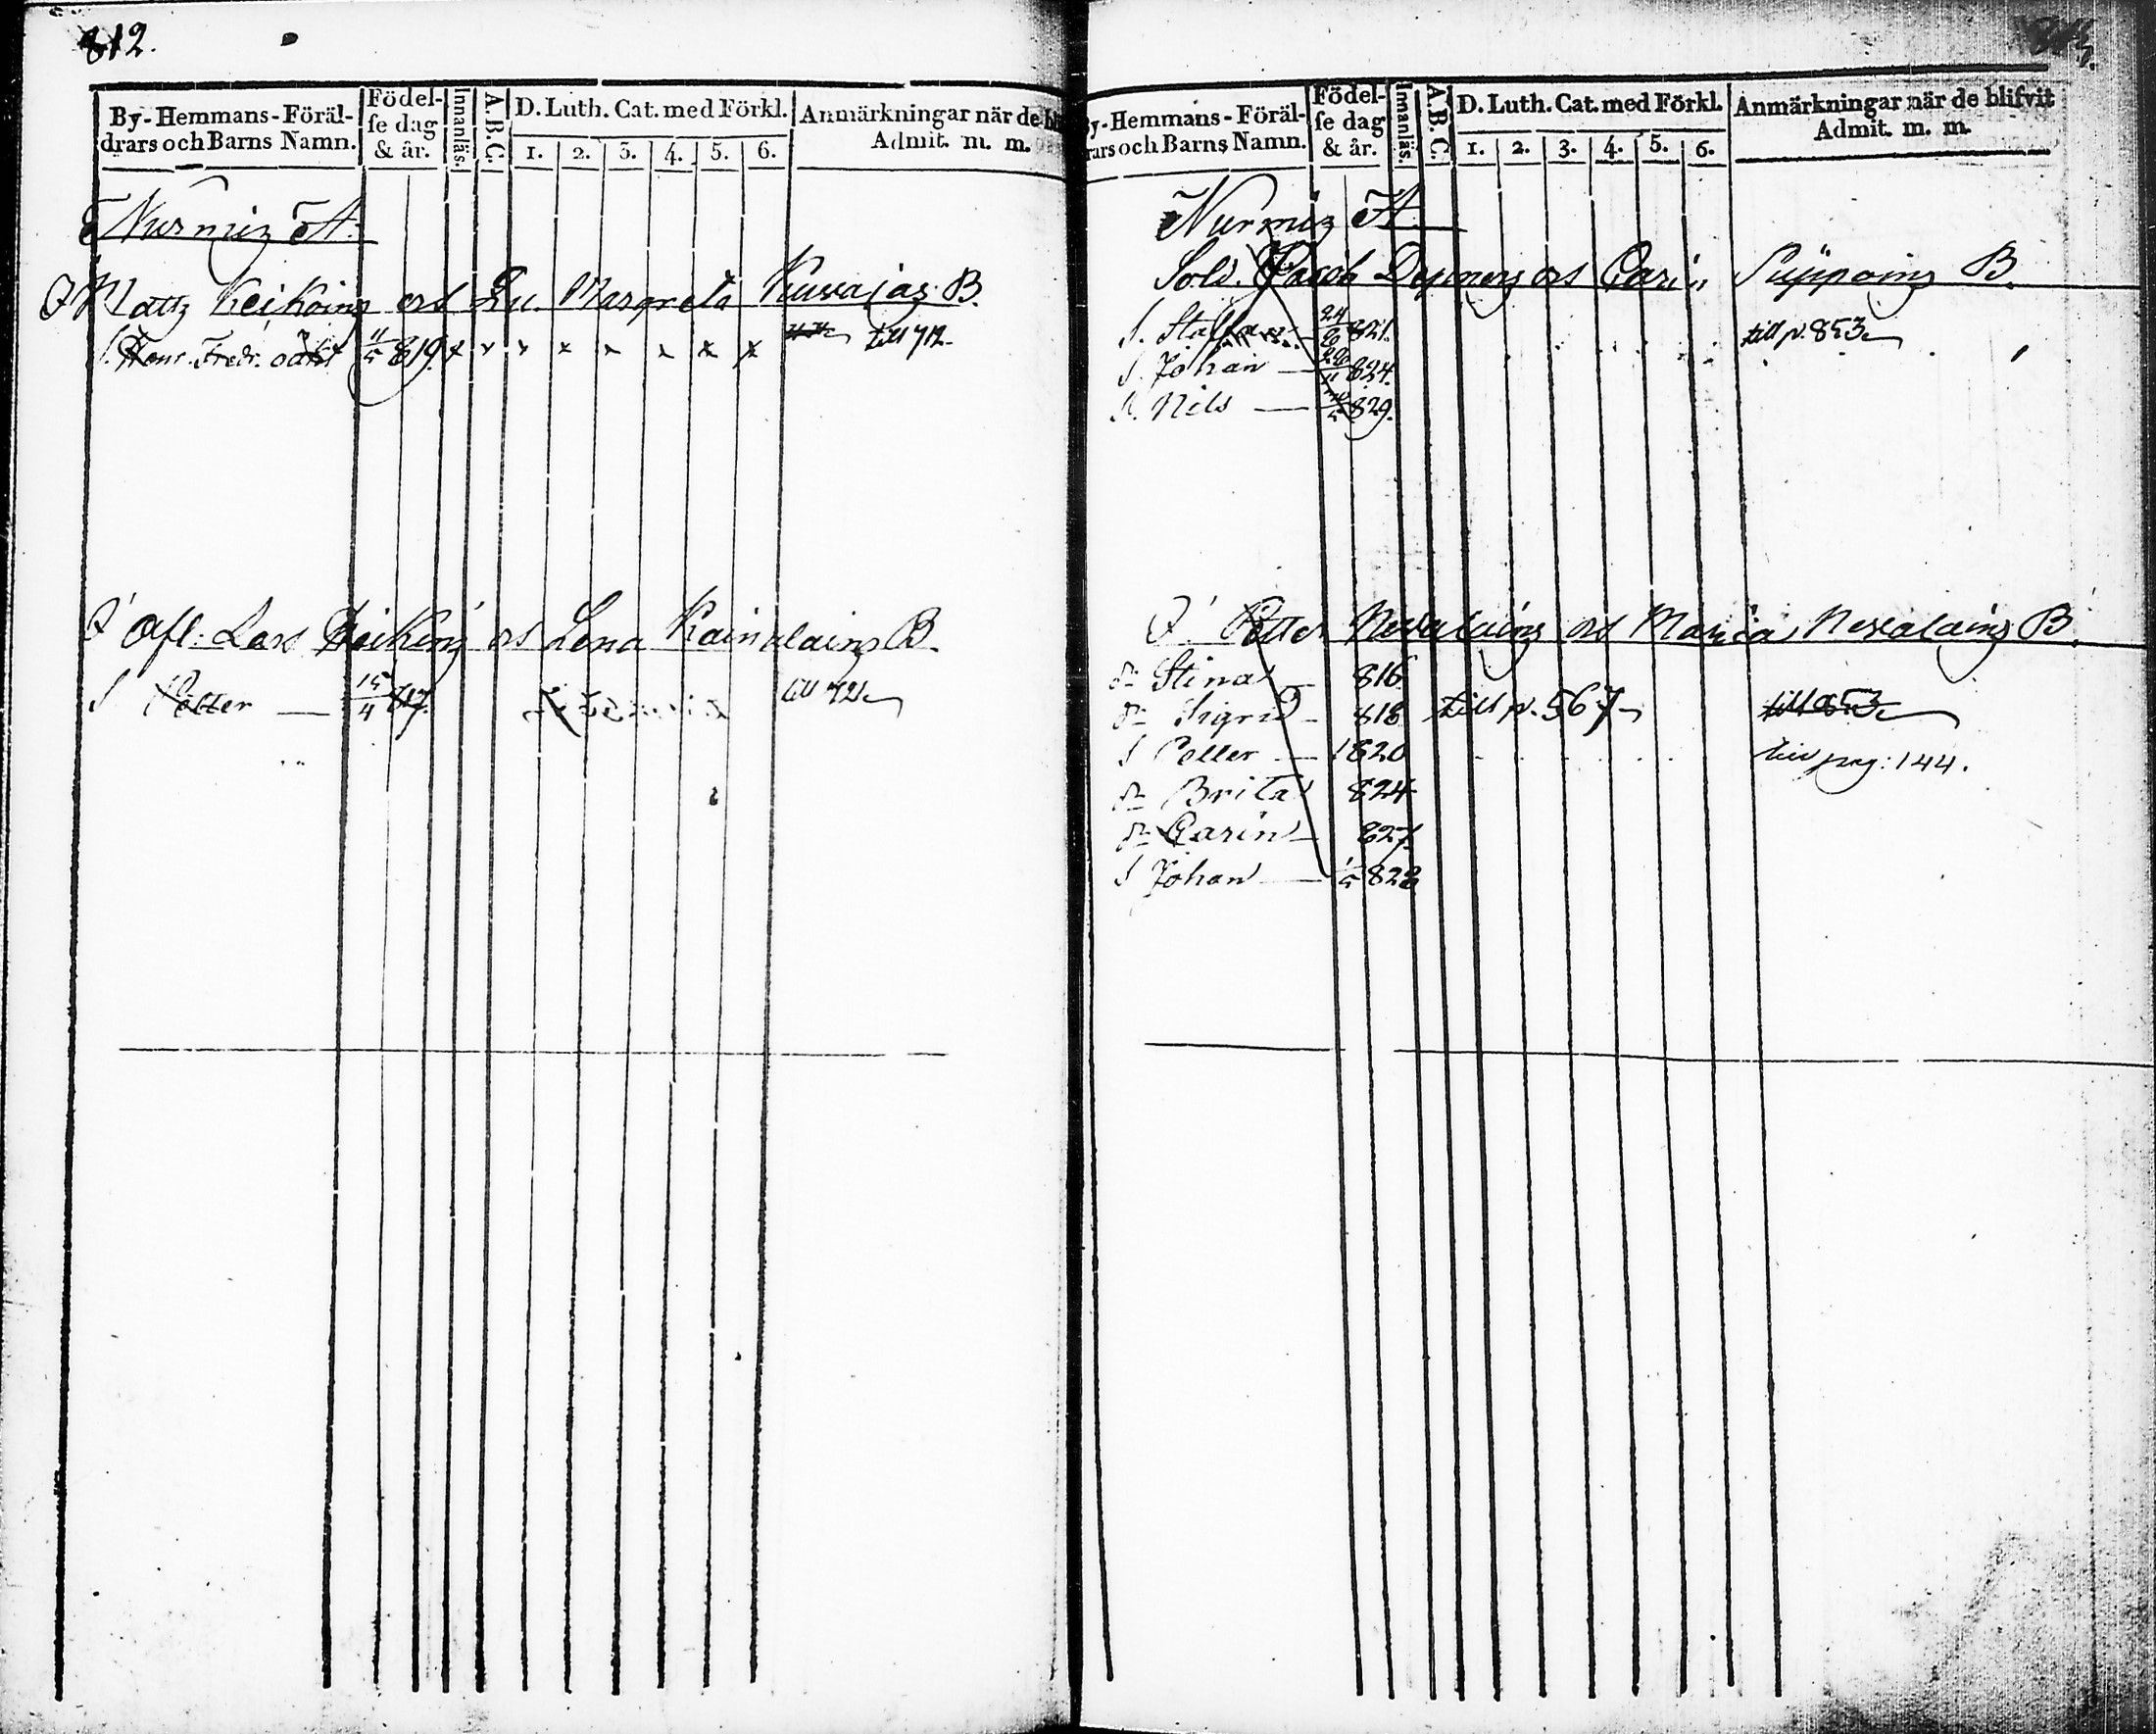 812.
By-Hemmans-Föräl-
drars och Barns Namn.
Födel-
se dag
& år.
Innanläs.
A.B.C.
D. Luth. Cat. med Förkl.
1. 2. 3. 4. 5. 6.
Anmärkningar när de
Admit. m. m.
Nurmiz A.
Mattz Keikoinz och Lu. Margreta B.
S. Henr. Fredr. 11/5 819. x x x x x x x x till 712.
Afl: Lars och Lena Kainulainz B.
S Petter — 15/4 817. till 712
813.
By-Hemmans-Föräl-
drars och Barns Namn.
Födel-
se dag
& år.
Innanläs.
A.B.C.
D. Luth. Cat. med Förkl.
1. 2. 3. 4. 5. 6.
Anmärkningar när de blifvit
Admit. m. m.
Nurmiz A
Sold. Jacob och Carin B.
S. Staffan 821. till p. 853
S. Johan — 824.
S. Nils — 829.
Petter Nevalainz och Maria Nevalainz B.
dr Stina — 816
dr Sigrid — 818 till p. 567 till 853
S Petter — 1820 pag: 144.
dr Brita 824
dr Carin — 827.
S Johan — 1/5 828